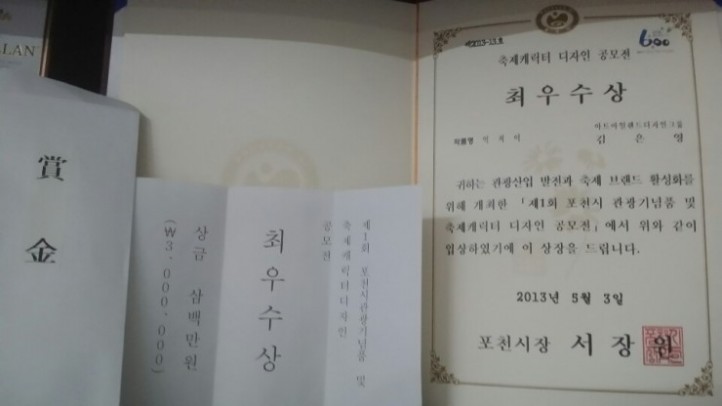 LAN
賞
金
제1회 포천시관광기념품 및
축제캐릭터디자인
공모전
최우수상
상금 삼백만원
(₩3,000,000)
600
축제캐릭터 디자인 공모전
최우수상
아트아일랜드디자인그룹
작품명
김은영
귀하는 관광산업 발전과 축제 브랜드 활성화를
위해 개최한 「제1회 포천시 관광기념품 및
축제캐릭터 디자인 공모전」에서 위와 같이
입상하였기에 이 상장을 드립니다.
2013년 5월 3일
포천시장 서장원